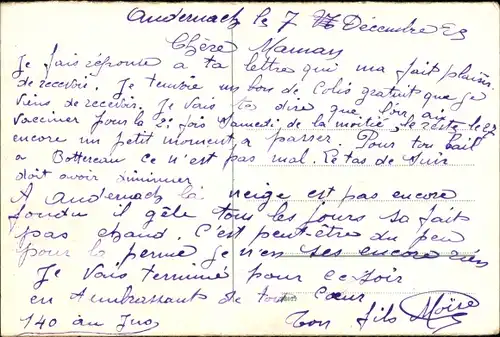 Andernach le 7 Décembre 53
Chère Maman
Je fais réponse a ta lettre qui ma fait plaisir
de recevoir. Je tenvoie un bon de Colis gratuit que je
viens de recevoir. Je vais te dire que l'on ai
vacciner pour la 2e fois Samedi de la moitié, le reste le 27
encore un petit moment a passer. Pour ton bail
a Bottereau ce n'est pas mal. Le tas de
doit avoir diminuer
A Andernach la neige est pas encore
fondu il gèle tous les jours sa fait
pas chaud. C'est peut-être du peu
pour la perme je n'en ses encore rien
Je vais terminé pour ce soir
en t'embrassant de tout cœur
140 au Jus Ton fils Moïse